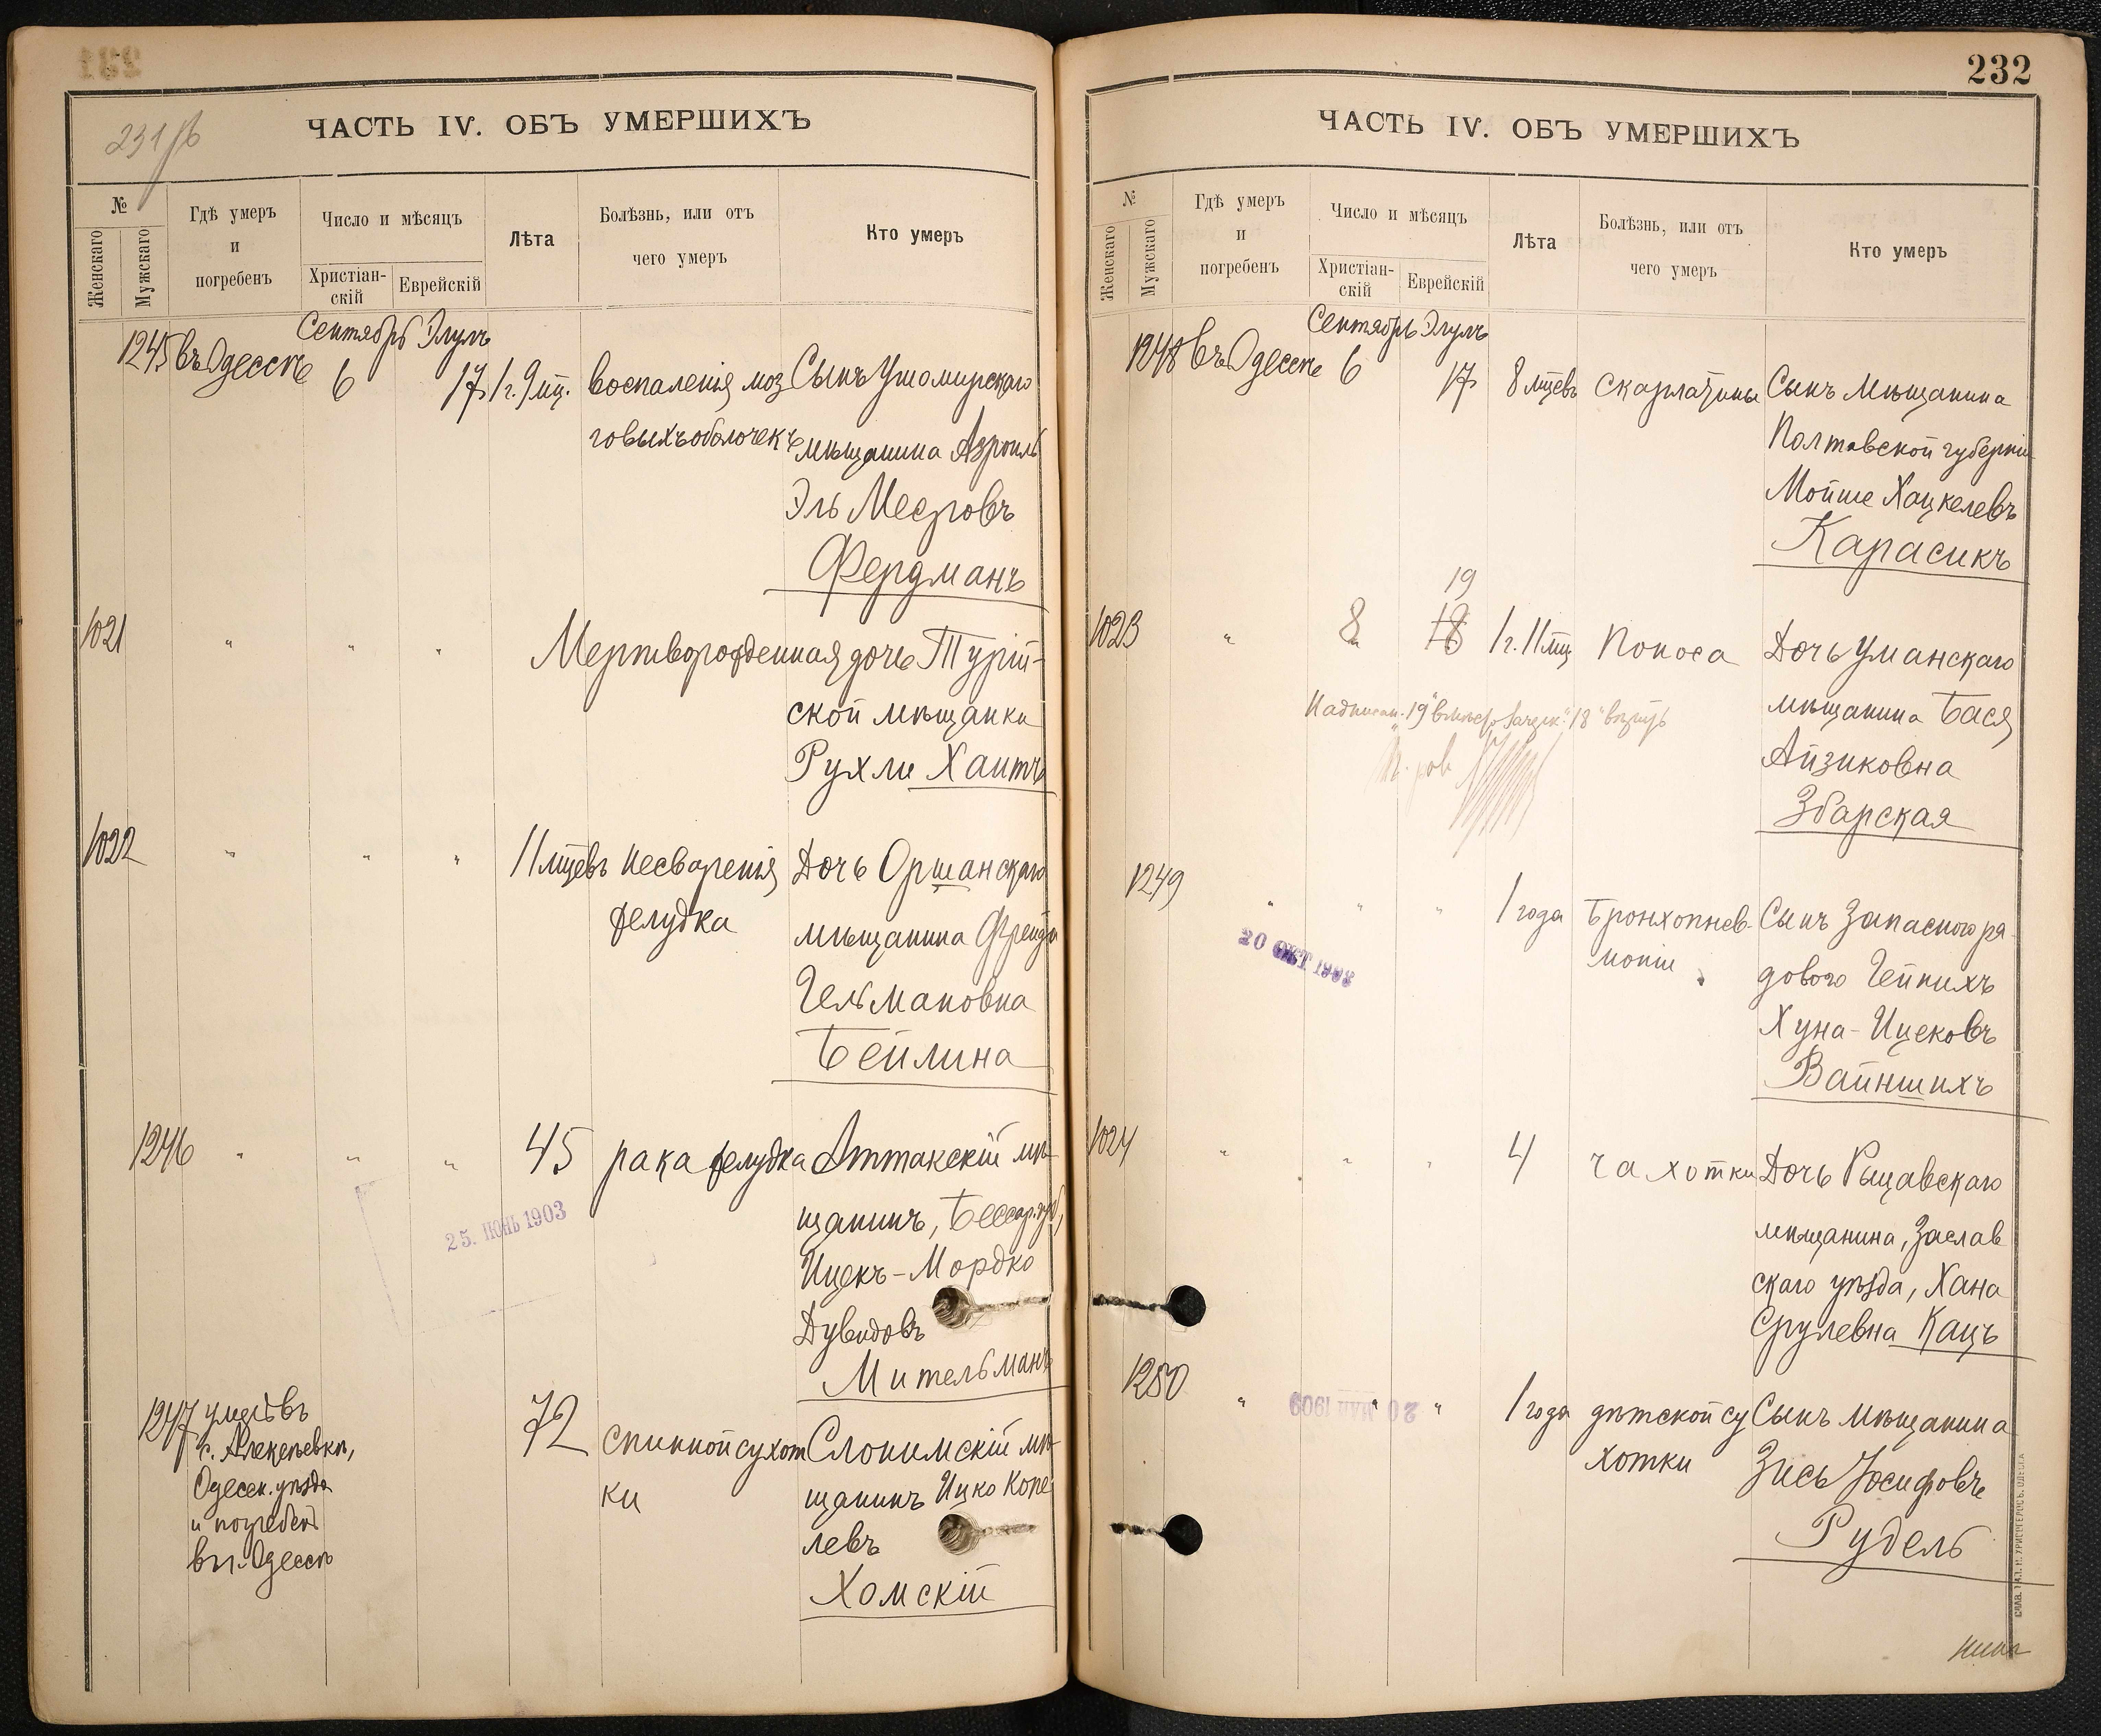 231 об
ЧАСТЬ IV. ОБЪ УМЕРШИХЪ
№
Женскаго
Мужскаго
Гдѣ умеръ
и
погребенъ
Число и мѣсяцъ
Христіан-
скій
Еврейскій
Лѣта
Болѣзнь, или отъ
чего умеръ
Кто умеръ
Сентябрь Элулъ
1245 въ Одессѣ 6 17 1 г. 9 мц. воспаленія моз Сынъ Ушомирскаго
говыхъ оболочекъ мѣщанина Азріиль
Эль Мееровъ
Фердманъ
1021 " " " Мертворожденная дочь Турій-
ской мѣщанки
Рухли Хаитъ
1022 " " " 11 мцевъ несваренія Дочь Оршанскаго
желудка мѣщанина Фрейда
Гельмановна
Бейлина
1246 " " " 45 рака желудка Аттакскій мѣ-
щанинъ, Бессар. губ,
Ицекъ-Мордко
Дувидовъ
Мительманъ
25. ІЮНЬ 1903
1247 умеръ въ 72 спинной сухот Слонимскій мѣ-
с. Алексѣевкѣ, ки щанинъ Ицко Копе
Одесск. уѣзда левъ
и погребенъ Хомскій
въ г. Одессѣ
232
ЧАСТЬ IV. ОБЪ УМЕРШИХЪ
№
Женскаго
Мужскаго
Гдѣ умеръ
и
погребенъ
Число и мѣсяцъ
Христіан-
скій
Еврейскій
Лѣта
Болѣзнь, или отъ
чего умеръ
Кто умеръ
Сентябрь Элулъ
1248 въ Одессѣ 6 17 8 мцевъ скарлатины Сынъ мѣщанина
Полтавской губерніи
Мойше Хацкелевъ
Карасикъ
19
1023 " 8 18 1 г. 11 мц Поноса Дочь Уманскаго
мѣщанина Бася
Айзиковна
Збарская
Надписан. "19" вмѣсто зачерк. "18" вѣрить
1249 " " " 1 года Бронхопнев- Сынъ Запасного ря-
моніи дового Гейнихъ
Хуна-Ицековъ
Вайншихъ
20 ОКТ 1903
1024 " " " 4 чахотки Дочь Рыцавскаго
мѣщанина, Заслав
скаго уѣзда, Хана
Срулевна Кацъ
1250 " " " 1 года дѣтской су Сынъ мѣщанина
хотки Зись Іосифовъ
Рудель
20 МАЯ 1909